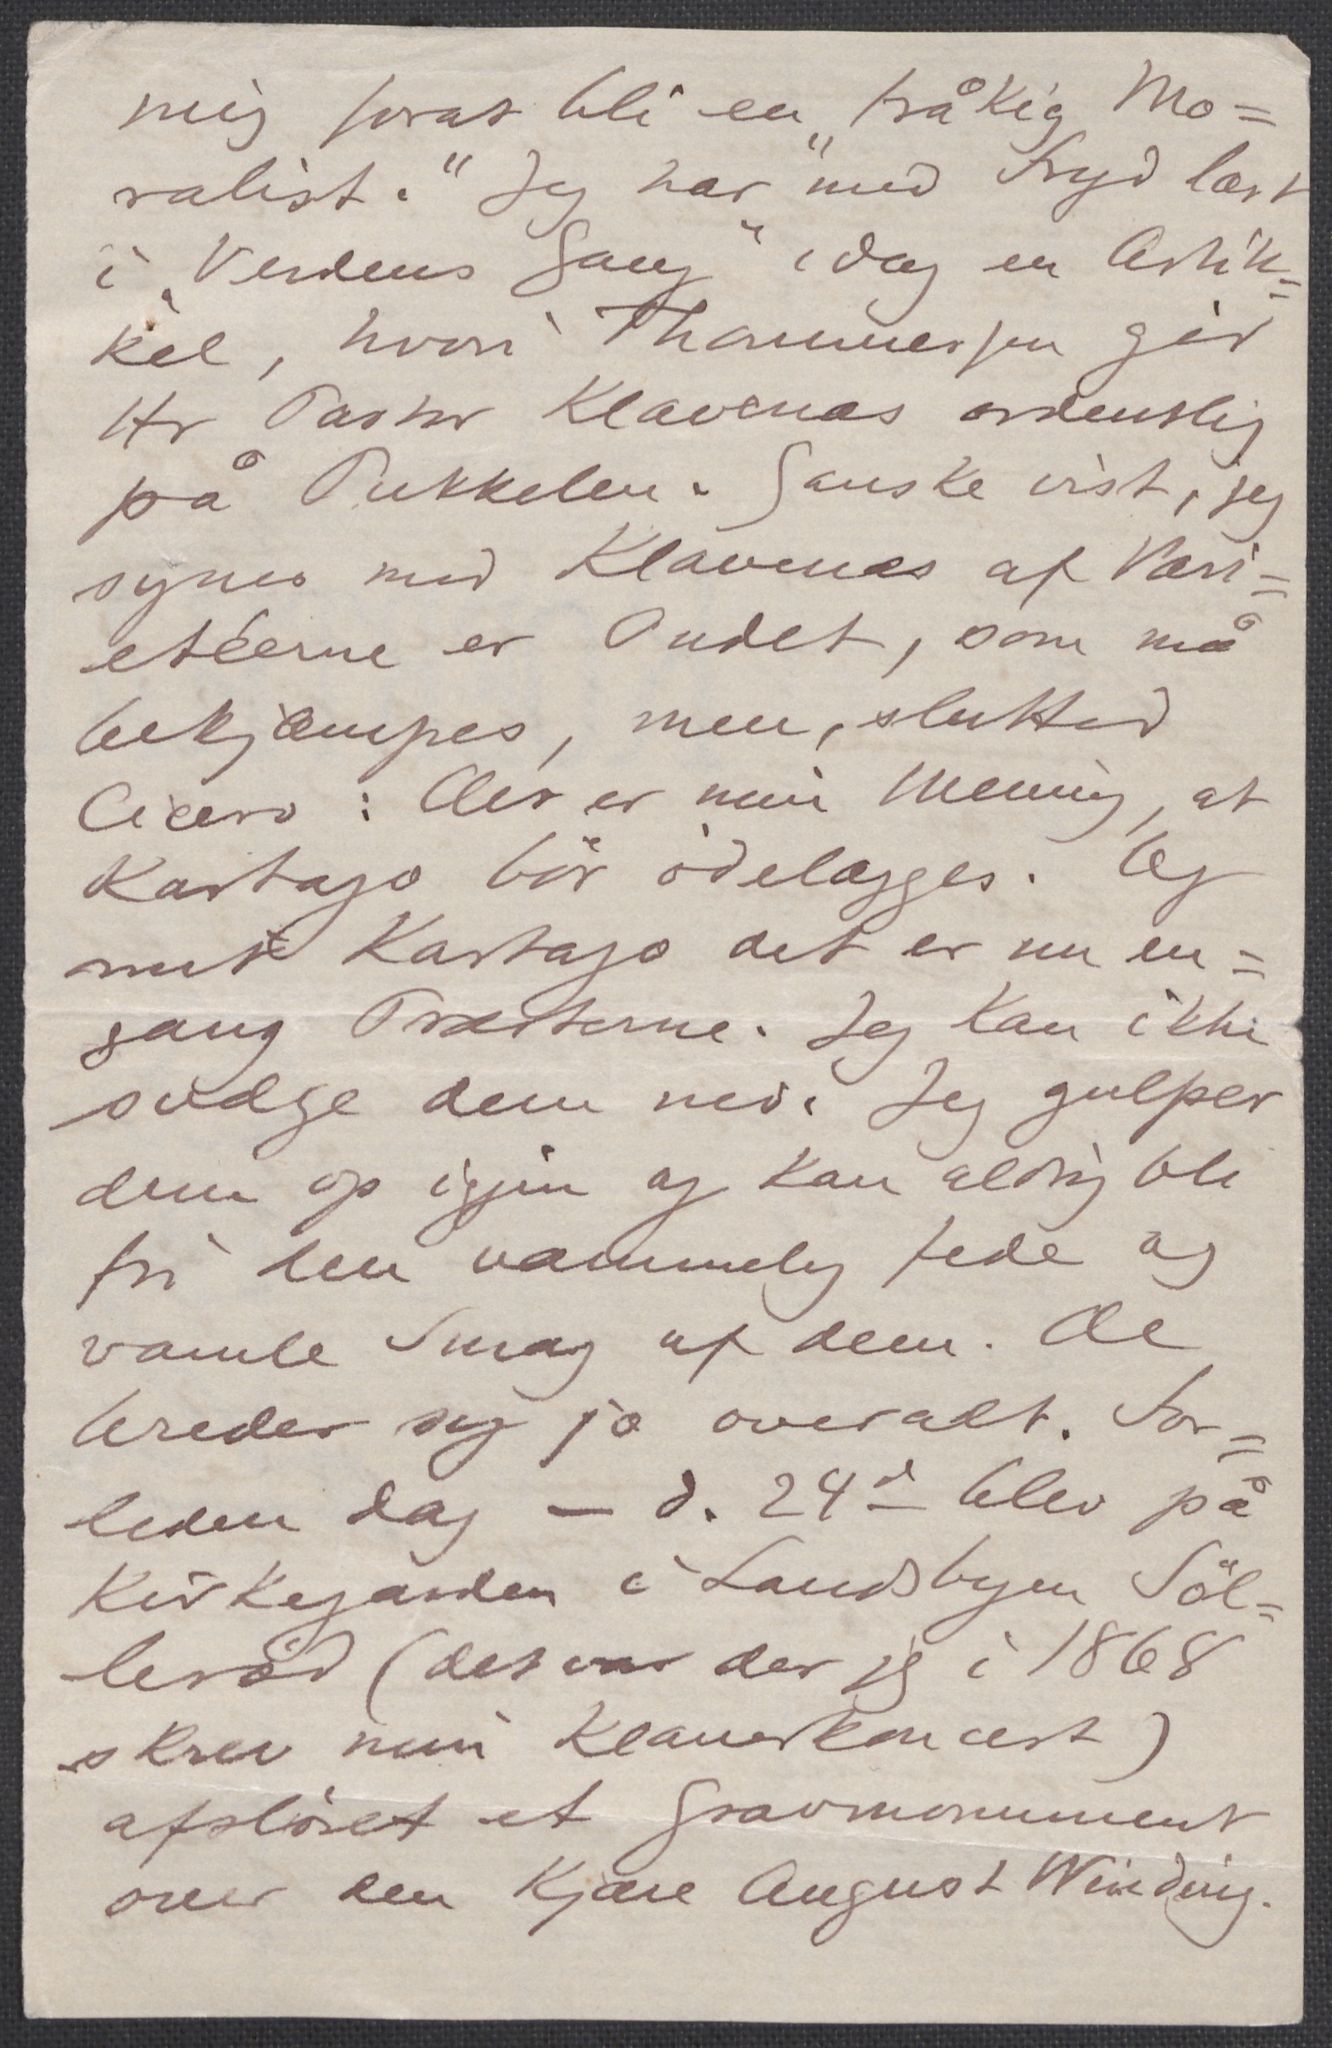 mig forat bli en „tråkig Mo=
ralist." Jeg har med Fryd læst
i „Verdens Gang" idag en Artik=
kel, hvori Thommessen gir
Hr Pastor Klavenæs ordentlig
på Pukkelen. Ganske vist, jeg
synes med Klavenæs at Vari=
etéerne er Ondet, som må
bekjæmpes, men, slutted
Cicero: Det er min Mening, at
Kartago bör ödelægges. Og
mit Kartago det er nu en=
gang Præsterne. Jeg kan ikke
svælge dem ned. Jeg gulper
dem op igjen og kan aldrig bli
fri den vammelig fede og
vamle Smag af dem. De
breder sig jo overalt. For=
leden Dag — d. 24d blev på
Kirkegården i Landsbyen Söl=
leröd (det var der jeg i 1868
skrev min Klaverkoncert)
afslöret et Gravmonument
over den kjære August Winding.